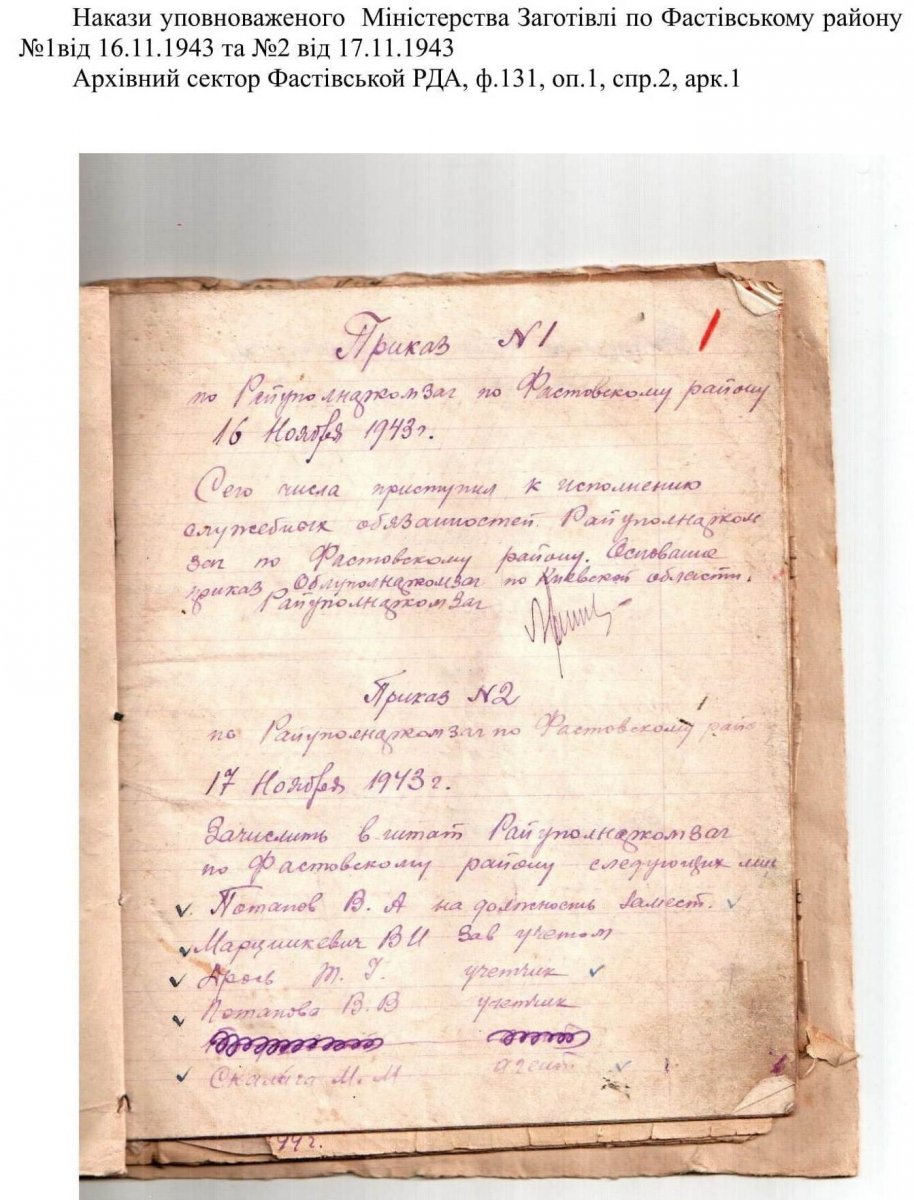 Накази уповноваженого Міністерства Заготівлі по Фастівському району
№1від 16.11.1943 та №2 від 17.11.1943
Архівний сектор Фастівської РДА, ф.131, оп.1, спр.2, арк.1
Приказ №1
1
по Райуполнаркомзаг по Фастовскому району
16 Ноября 1943г.
Сего числа приступил к исполнению
служебных обязанностей Райуполнарком
заг по Фастовскому району. Основание
приказ Облуполнаркомзаг по Киевской области.
Райуполнаркомзаг
Приказ №2
по Райуполнаркомзаг по Фастовскому
17 Ноября 1943г.
Зачислить в штат Райуполнаркомзаг
по Фастовскому району следующих лиц
Потапов В. А на должность замест.
Марцишкевич ВИ Зав учетом
учетчик
Потапова В. В учетчик
М. М агент
44г.